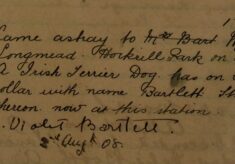 Came astray to Mrs Bart
Longmead. Hockerill Park on
A Irish Terrier Dog has on
ollar with name Bartlett St
hereon. now at this station.
Violet Bartlett.
2nd Augt 08.